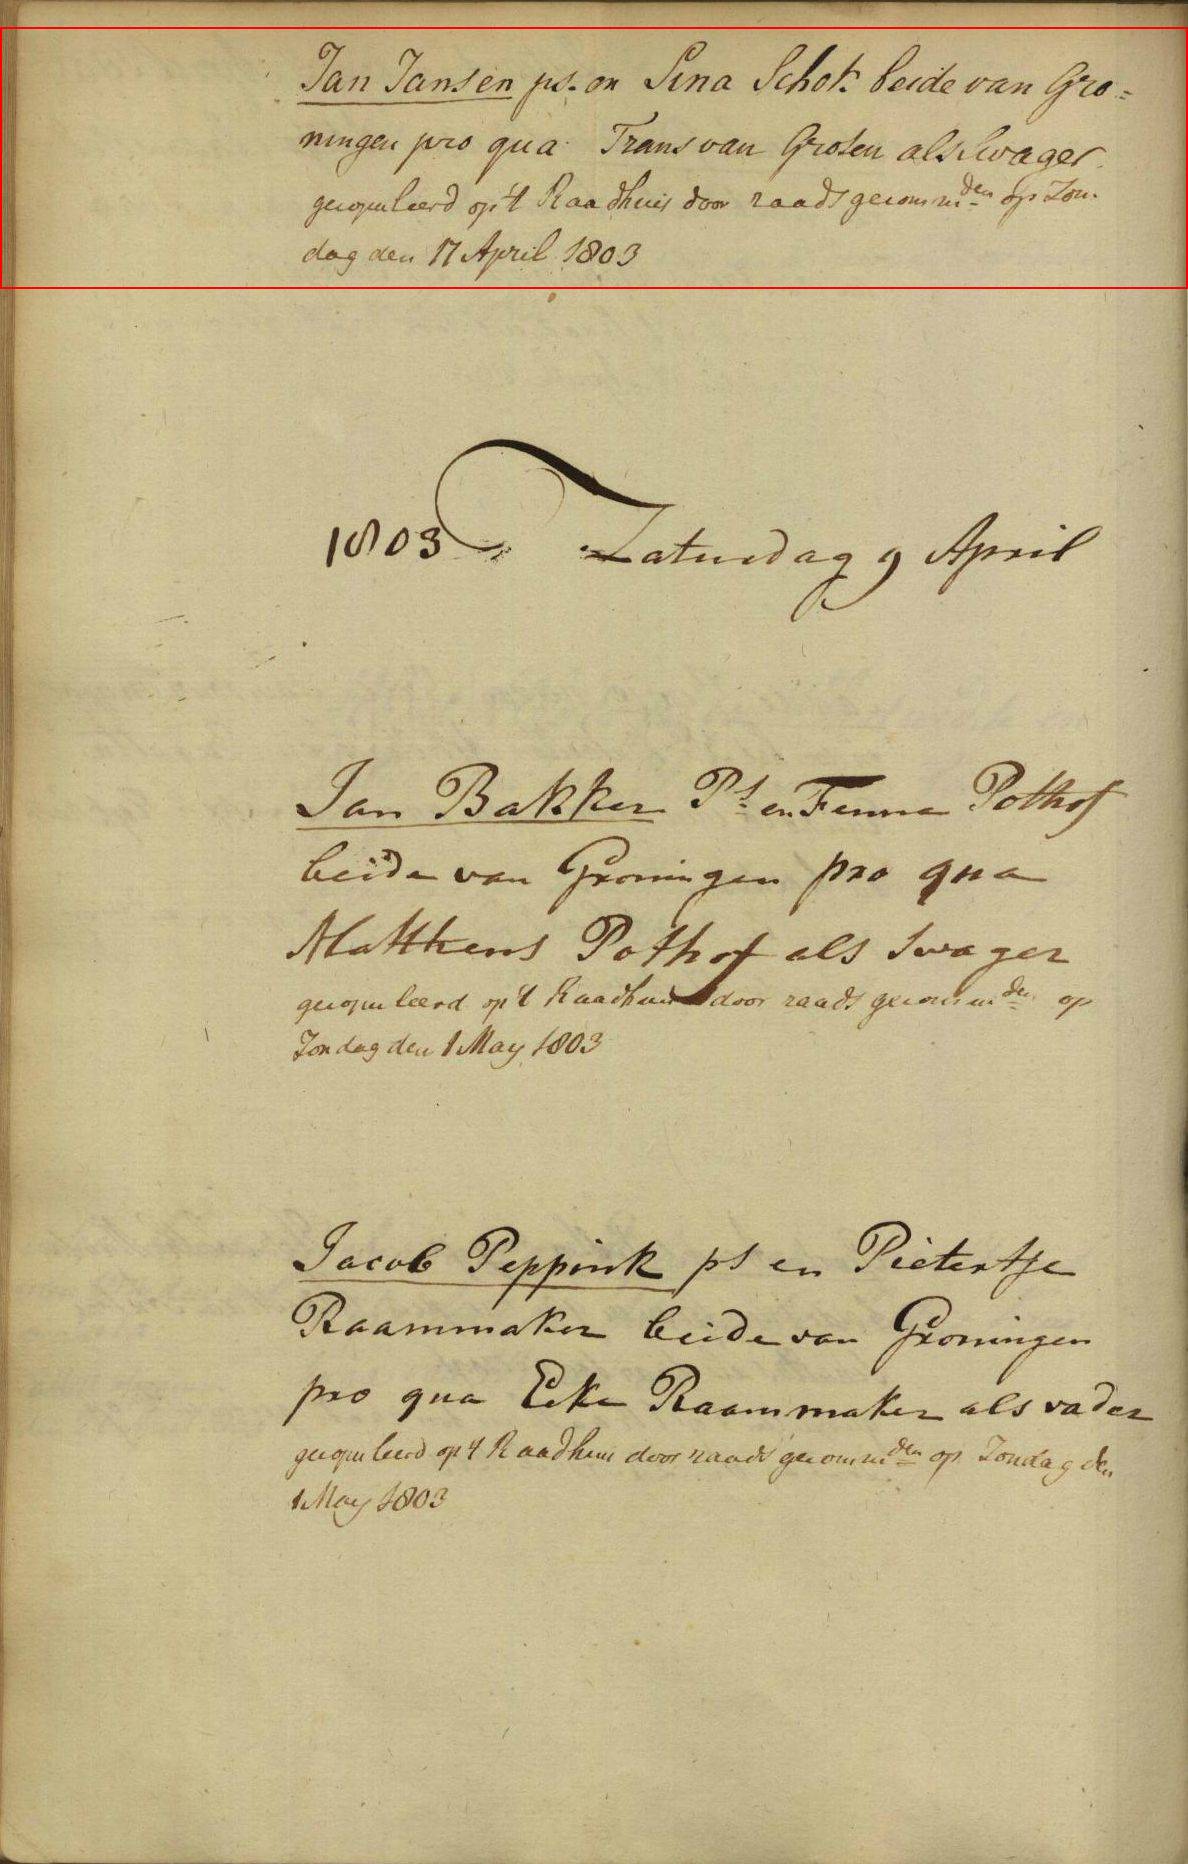 Jan Jansen ps. en Sina Schot beide van Gro=
ningen pro qua Frans van Groten als Swager
gecopuleerd op 't Raadhuis door raads gecommden op Zon-
dag den 17 April 1803
1803 Zaturdag 9 April
Jan Bakker Ps en Fenna Pothof
beide van Groningen pro qua
Mattheus Pothof als Swager
gecopuleerd op 't Raadhuis door raads gecommden op
Zondag den 1 May 1803
Jacob Peppink ps en Pietertje
Raammaker beide van Groningen
pro qua Eeke Raammaker als vader
gecopuleerd op 't Raadhuis door raads gecommden op Zondag den
1 May 1803